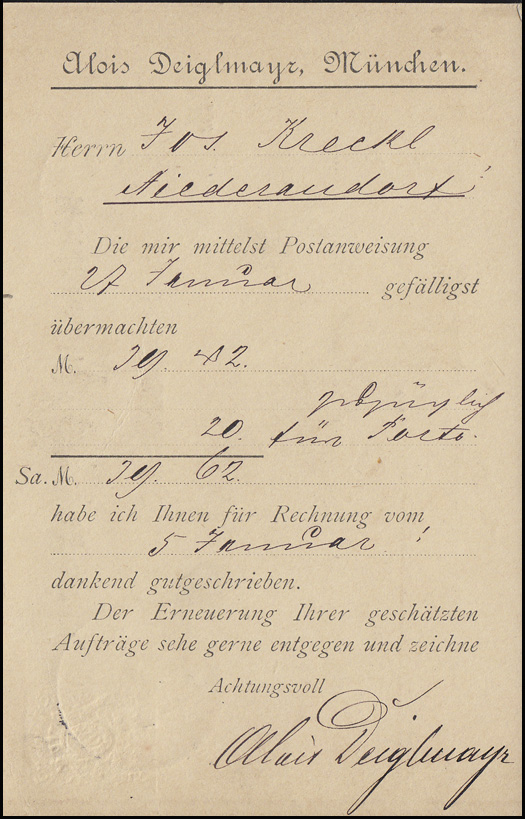 Alois Deiglmayr, München.
Herrn Jos. Kreckl
Niederaudorf
Die mir mittelst Postanweisung
27 Januar gefälligst
übermachten
M. 39. 42.
20. für Porto.
Sa. M. 39. 62.
habe ich Ihnen für Rechnung vom
5 Januar
dankend gutgeschrieben.
Der Erneuerung Ihrer geschätzten
Aufträge sehe gerne entgegen und zeichne
Achtungsvoll
Alois Deiglmayr